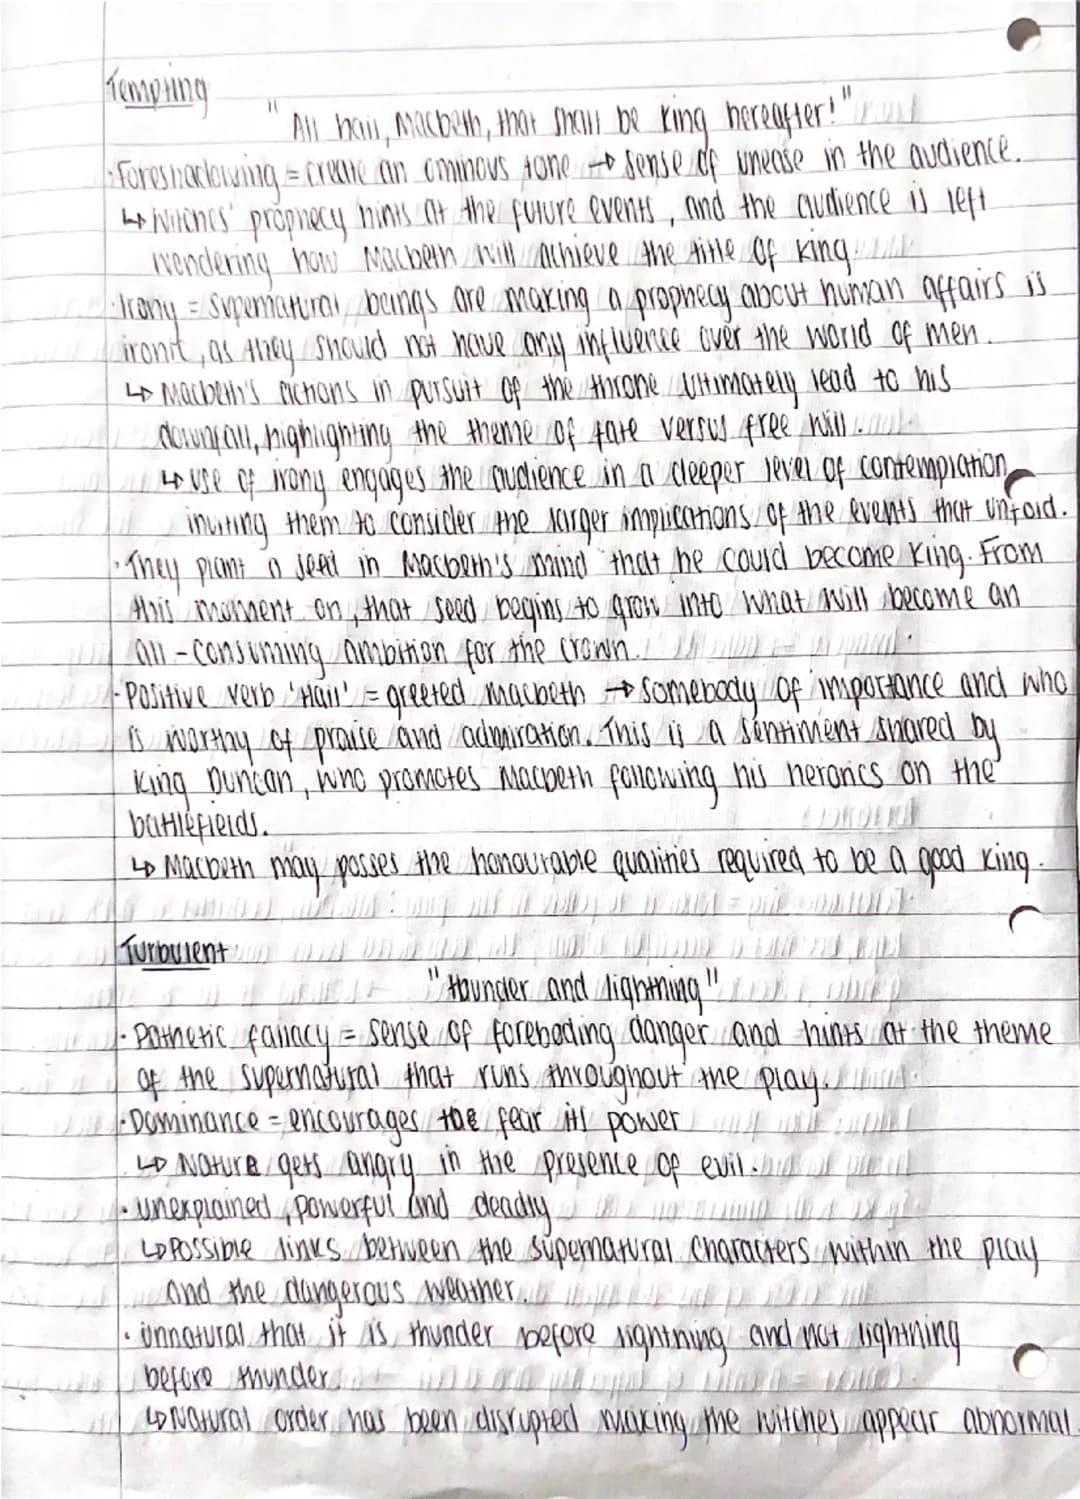 Tempting
"All hail, Macbeth, that shall be king hereafter!"
·Foreshadowing = create an ominous tone → sense of unease in the audience.
↳ Witches' prophecy hints at the future events, and the audience is left
wondering how Macbeth will achieve the title of king.
·Irony = supernatural beings are making a prophecy about human affairs is
ironic, as they should not have any influence over the world of men.
↳ Macbeth's actions in pursuit of the throne ultimately lead to his
downfall, highlighting the theme of fate versus free will.
↳ use of irony engages the audience in a deeper level of contemplation
inviting them to consider the larger implications of the events that unfold.
·They plant a seed in Macbeth's mind that he could become King. From
this moment on, that seed begins to grow into what will become an
all-consuming ambition for the crown.
·Positive verb 'Hail' = greeted Macbeth → somebody of importance and who
is worthy of praise and admiration. This is a sentiment shared by
King Duncan, who promotes Macbeth following his heroics on the
battlefields.
↳ Macbeth may posses the honourable qualities required to be a good king.
Turbulent
"thunder and lightning"
·Pathetic fallacy = sense of foreboding danger and hints at the theme
of the supernatural that runs throughout the play.
·Dominance = encourages the fear its power
↳ Nature gets angry in the presence of evil.
·unexplained, powerful and deadly
↳ Possible links between the supernatural characters within the play
and the dangerous weather.
·Unnatural that it is thunder before lightning and not lightning
before thunder.
↳ Natural order has been disrupted making the witches appear abnormal.